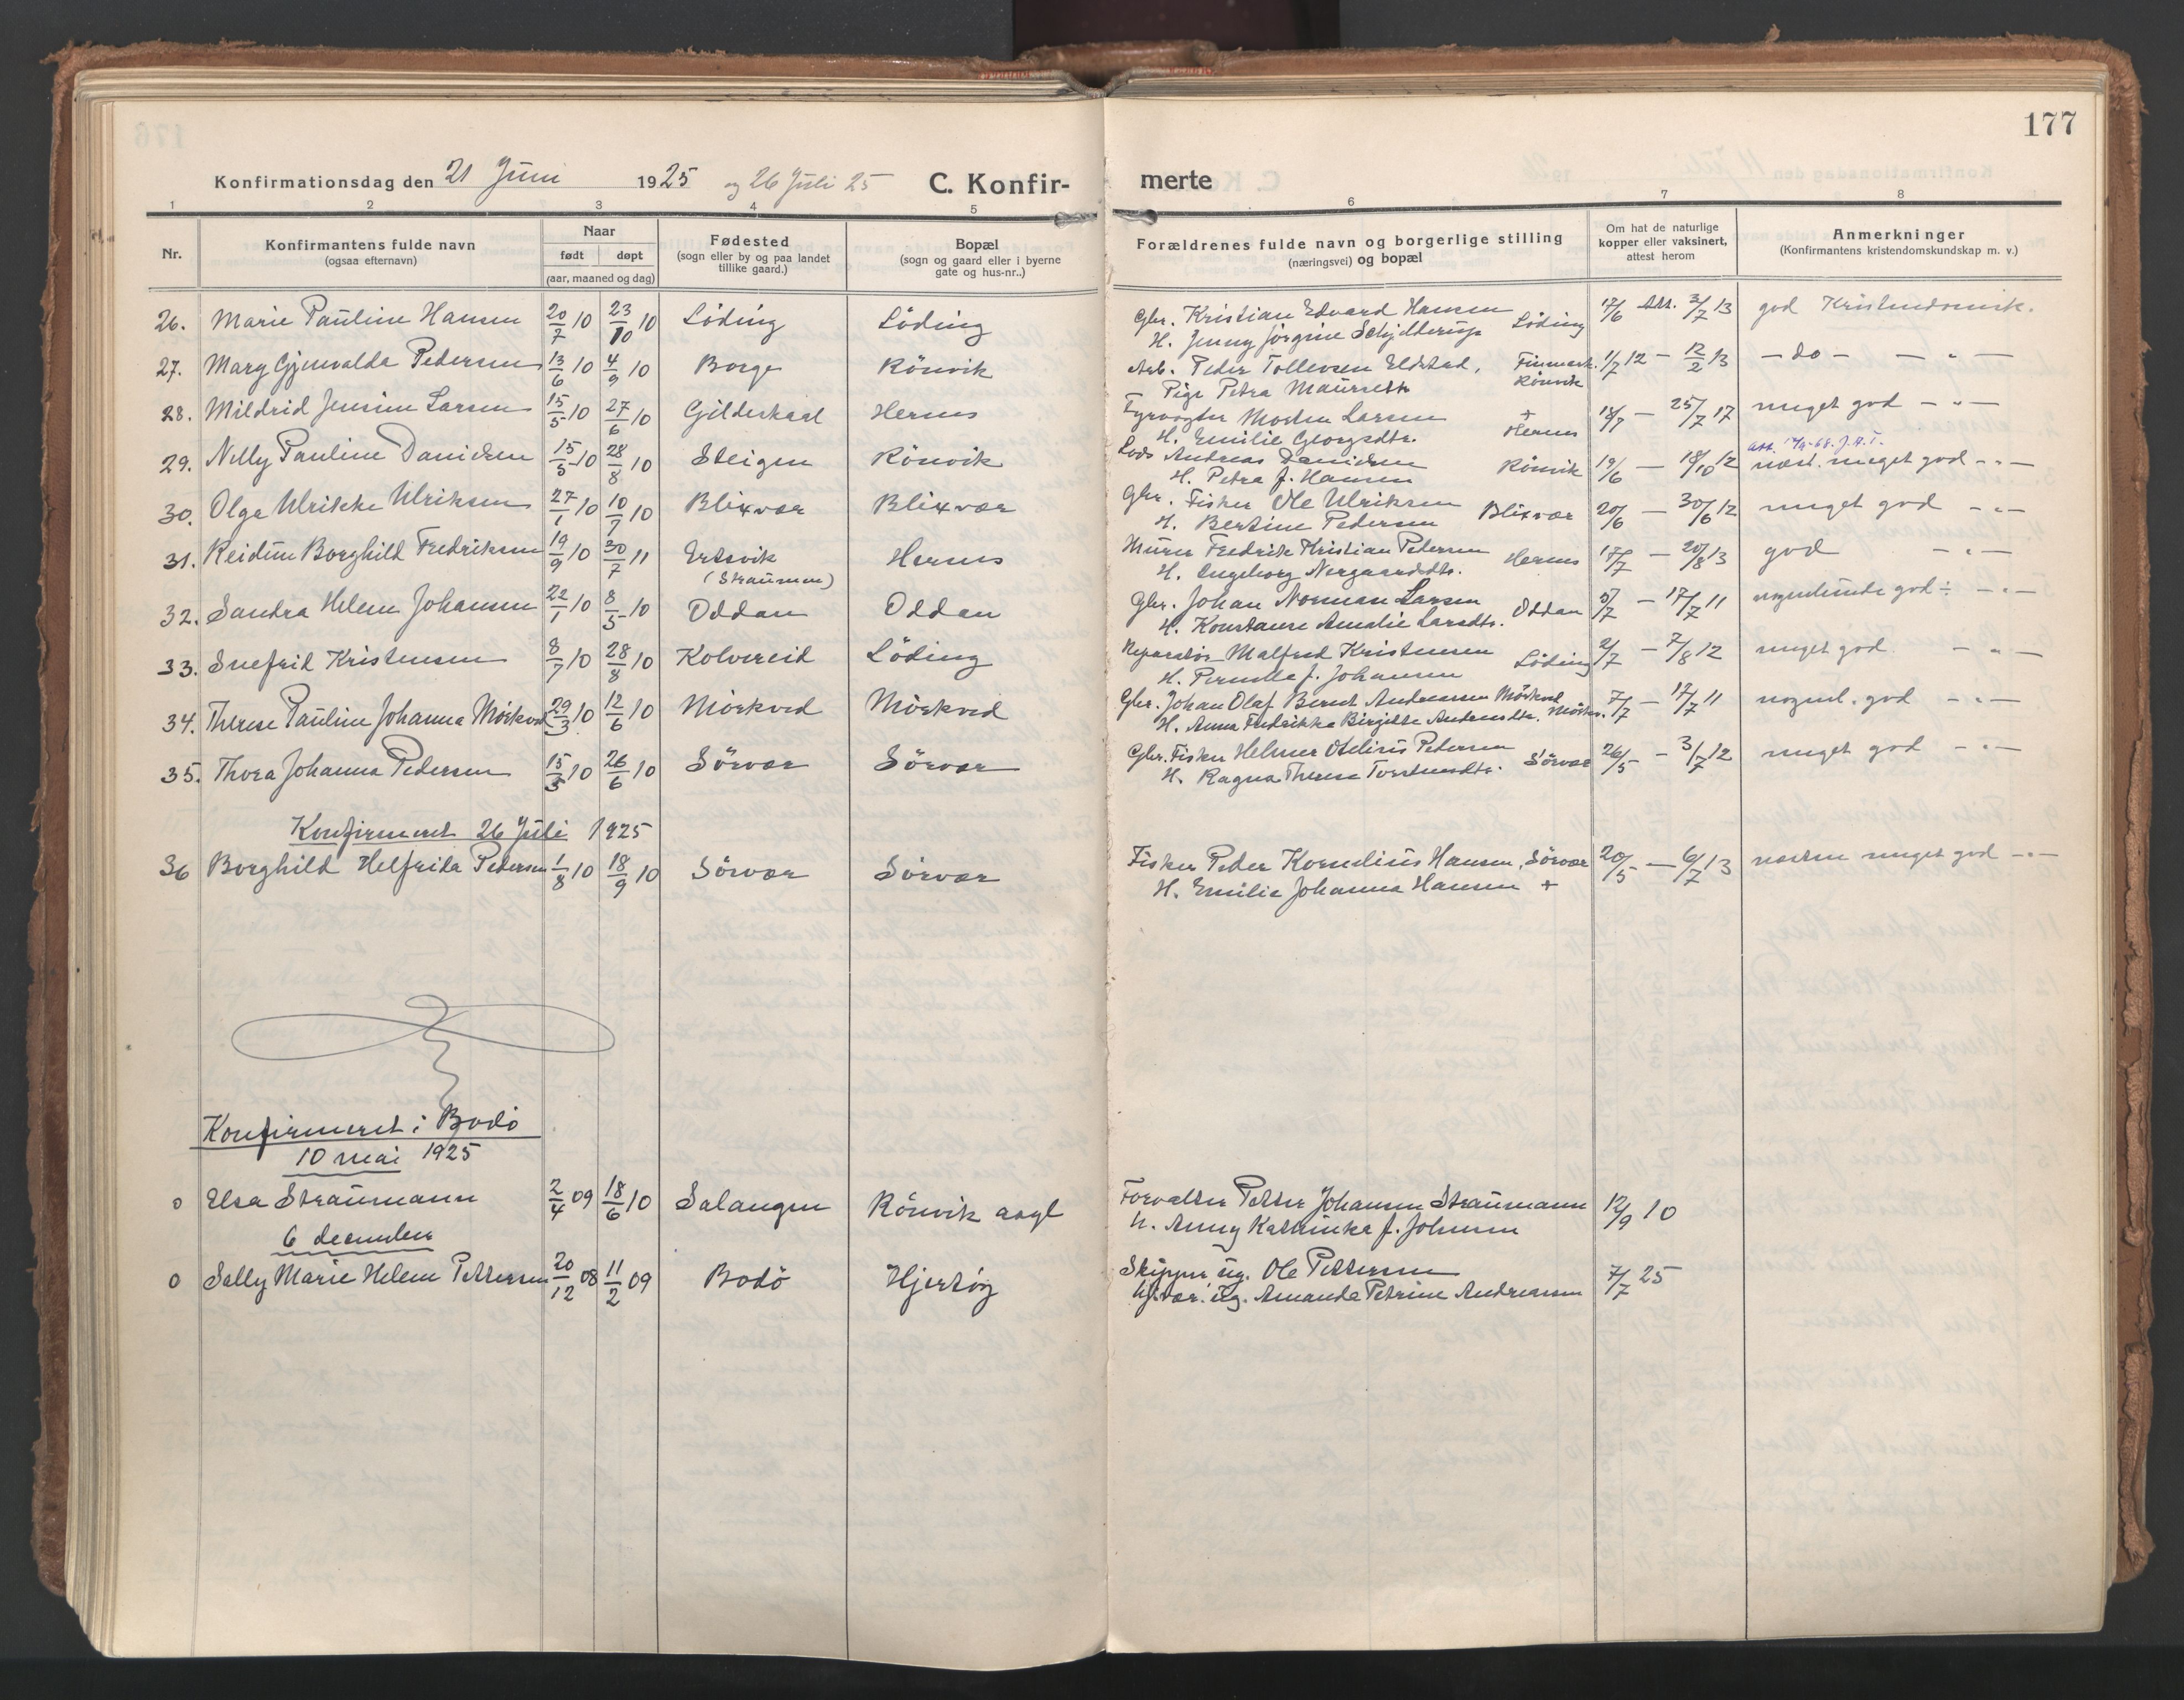 177
Konfirmationsdag den 21 Juni 1925 og 26 Juli 25 C. Konfir-merte
1 2 3 4 5 6 7 8
Nr. Konfirmantens fulde navn (ogsaa efternavn) Naar født døpt (aar, maaned og dag) Fødested (sogn eller by og paa landet tillike gaard.) Bopæl (sogn og gaard eller i byerne gate og hus-nr..) Forældrenes fulde navn og borgerlige stilling (næringsvei) og bopæl Om hat de naturlige kopper eller vaksinert, attest herom Anmerkninger (Konfirmantens kristendomskundskap m. v.)
26. Marie Pauline Hansen 20/7 10 23/10 10 Löding Löding Gbr. Kristian Edvard Hansen Löding 17/6 Att. 3/7 13 god Kristendomsk.
H. Jenny Jörgine Schjelderup
27. Mary Gjenvalda Pedersen 13/6 10 4/9 10 Borge Rönvik Arb. Peder Tollevsen Eldstad, Finmark. 1/7 12 – 12/2 13 – do – – " –
Pige Petra Maurseth Rönvik
28. Mildrid Jensine Larsen 15/5 10 27/6 10 Gildeskaal Hernes Fyrvogter Morten Larsen + 18/7 – 25/7 17 meget god – " –
H. Emilie Georgsdtr. Hernes
29. Nelly Pauline Danielsen 15/5 10 28/8 10 Steigen Rönvik Lods Andreas Danielsen Rönvik 19/6 – 18/10 12 næst. meget god – " –
H. Petra f. Hansen
30. Olga Ulrikke Ulriksen 27/1 10 10/7 10 Blixvær Blixvær Gbr. Fisker Ole Ulriksen Blixvær 20/6 – 30/6 12 meget god – " –
H. Bertine Pedersen
31. Reidun Borghild Fredriksen 19/9 10 30/7 11 Ertsvik Hernes Murer Fredrik Kristian Petersen Hernes 17/7 – 20/8 13 god – " –
(Straumen) H. Ingeborg Nergaardsdtr.
32. Sandra Helene Johansen 22/1 10 8/5 10 Oddan Oddan Gbr. Johan Norman Larsen Oddan 5/7 – 17/7 11 nogenlunde god ÷ – " –
H. Konstanse Amalie Larsdtr.
33. Snefrid Kristensen 8/7 10 28/8 10 Kolvereid Löding Reparatör Malfred Kristensen Löding 2/7 – 7/8 12 meget god. – " –
H. Pernille f. Johansen
34. Therese Pauline Johanna Mörkved 29/3 10 12/6 10 Mörkved Mörkved Gbr. Johan Olaf Bernt Andreassen Mörkved 7/7 – 17/7 11 nogenl. god – " –
H. Anna Fredrikke Birgitte Andreasdtr. Mörkv.
35. Thora Johanna Pedersen 15/3 10 26/6 10 Sörvær Sörvær Gbr. Fisker Helmer Otelius Pedersen Sörvær 26/5 – 3/7 12 meget god – " –
H. Ragna Therese Torstensdtr.
Konfirmeret 26 Juli 1925
36 Borghild Helfrida Pedersen 1/8 10 18/9 10 Sörvær Sörvær Fisker Peder Kornelius Hansen, Sörvær 20/5 – 6/7 13 næsten meget god – " –
H. Emilie Johanna Hansen +
Konfirmeret i Bodö
10 mai 1925
0 Elsa Straumann 2/4 09 18/6 10 Salangen Rönvik asyl Forvalter Petter Johansen Straumann 12/9 10
H. Anny Kathinka f. Johnsen
6 december
0 Sally Marie Helene Pettersen 20/12 08 11/2 09 Bodö Hjertöy Skipper ug. Ole Pettersen 7/7 25
ug. Amanda Petrine Andreassen